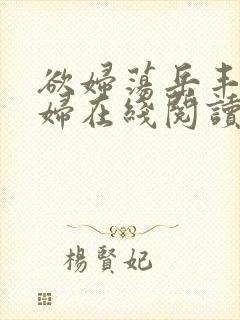 欲婦蕩岳丰
婦在綫閱讀
楊賢妃